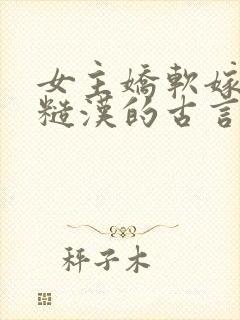 女主嬌軟嫁
糙漢的古言
秤子木